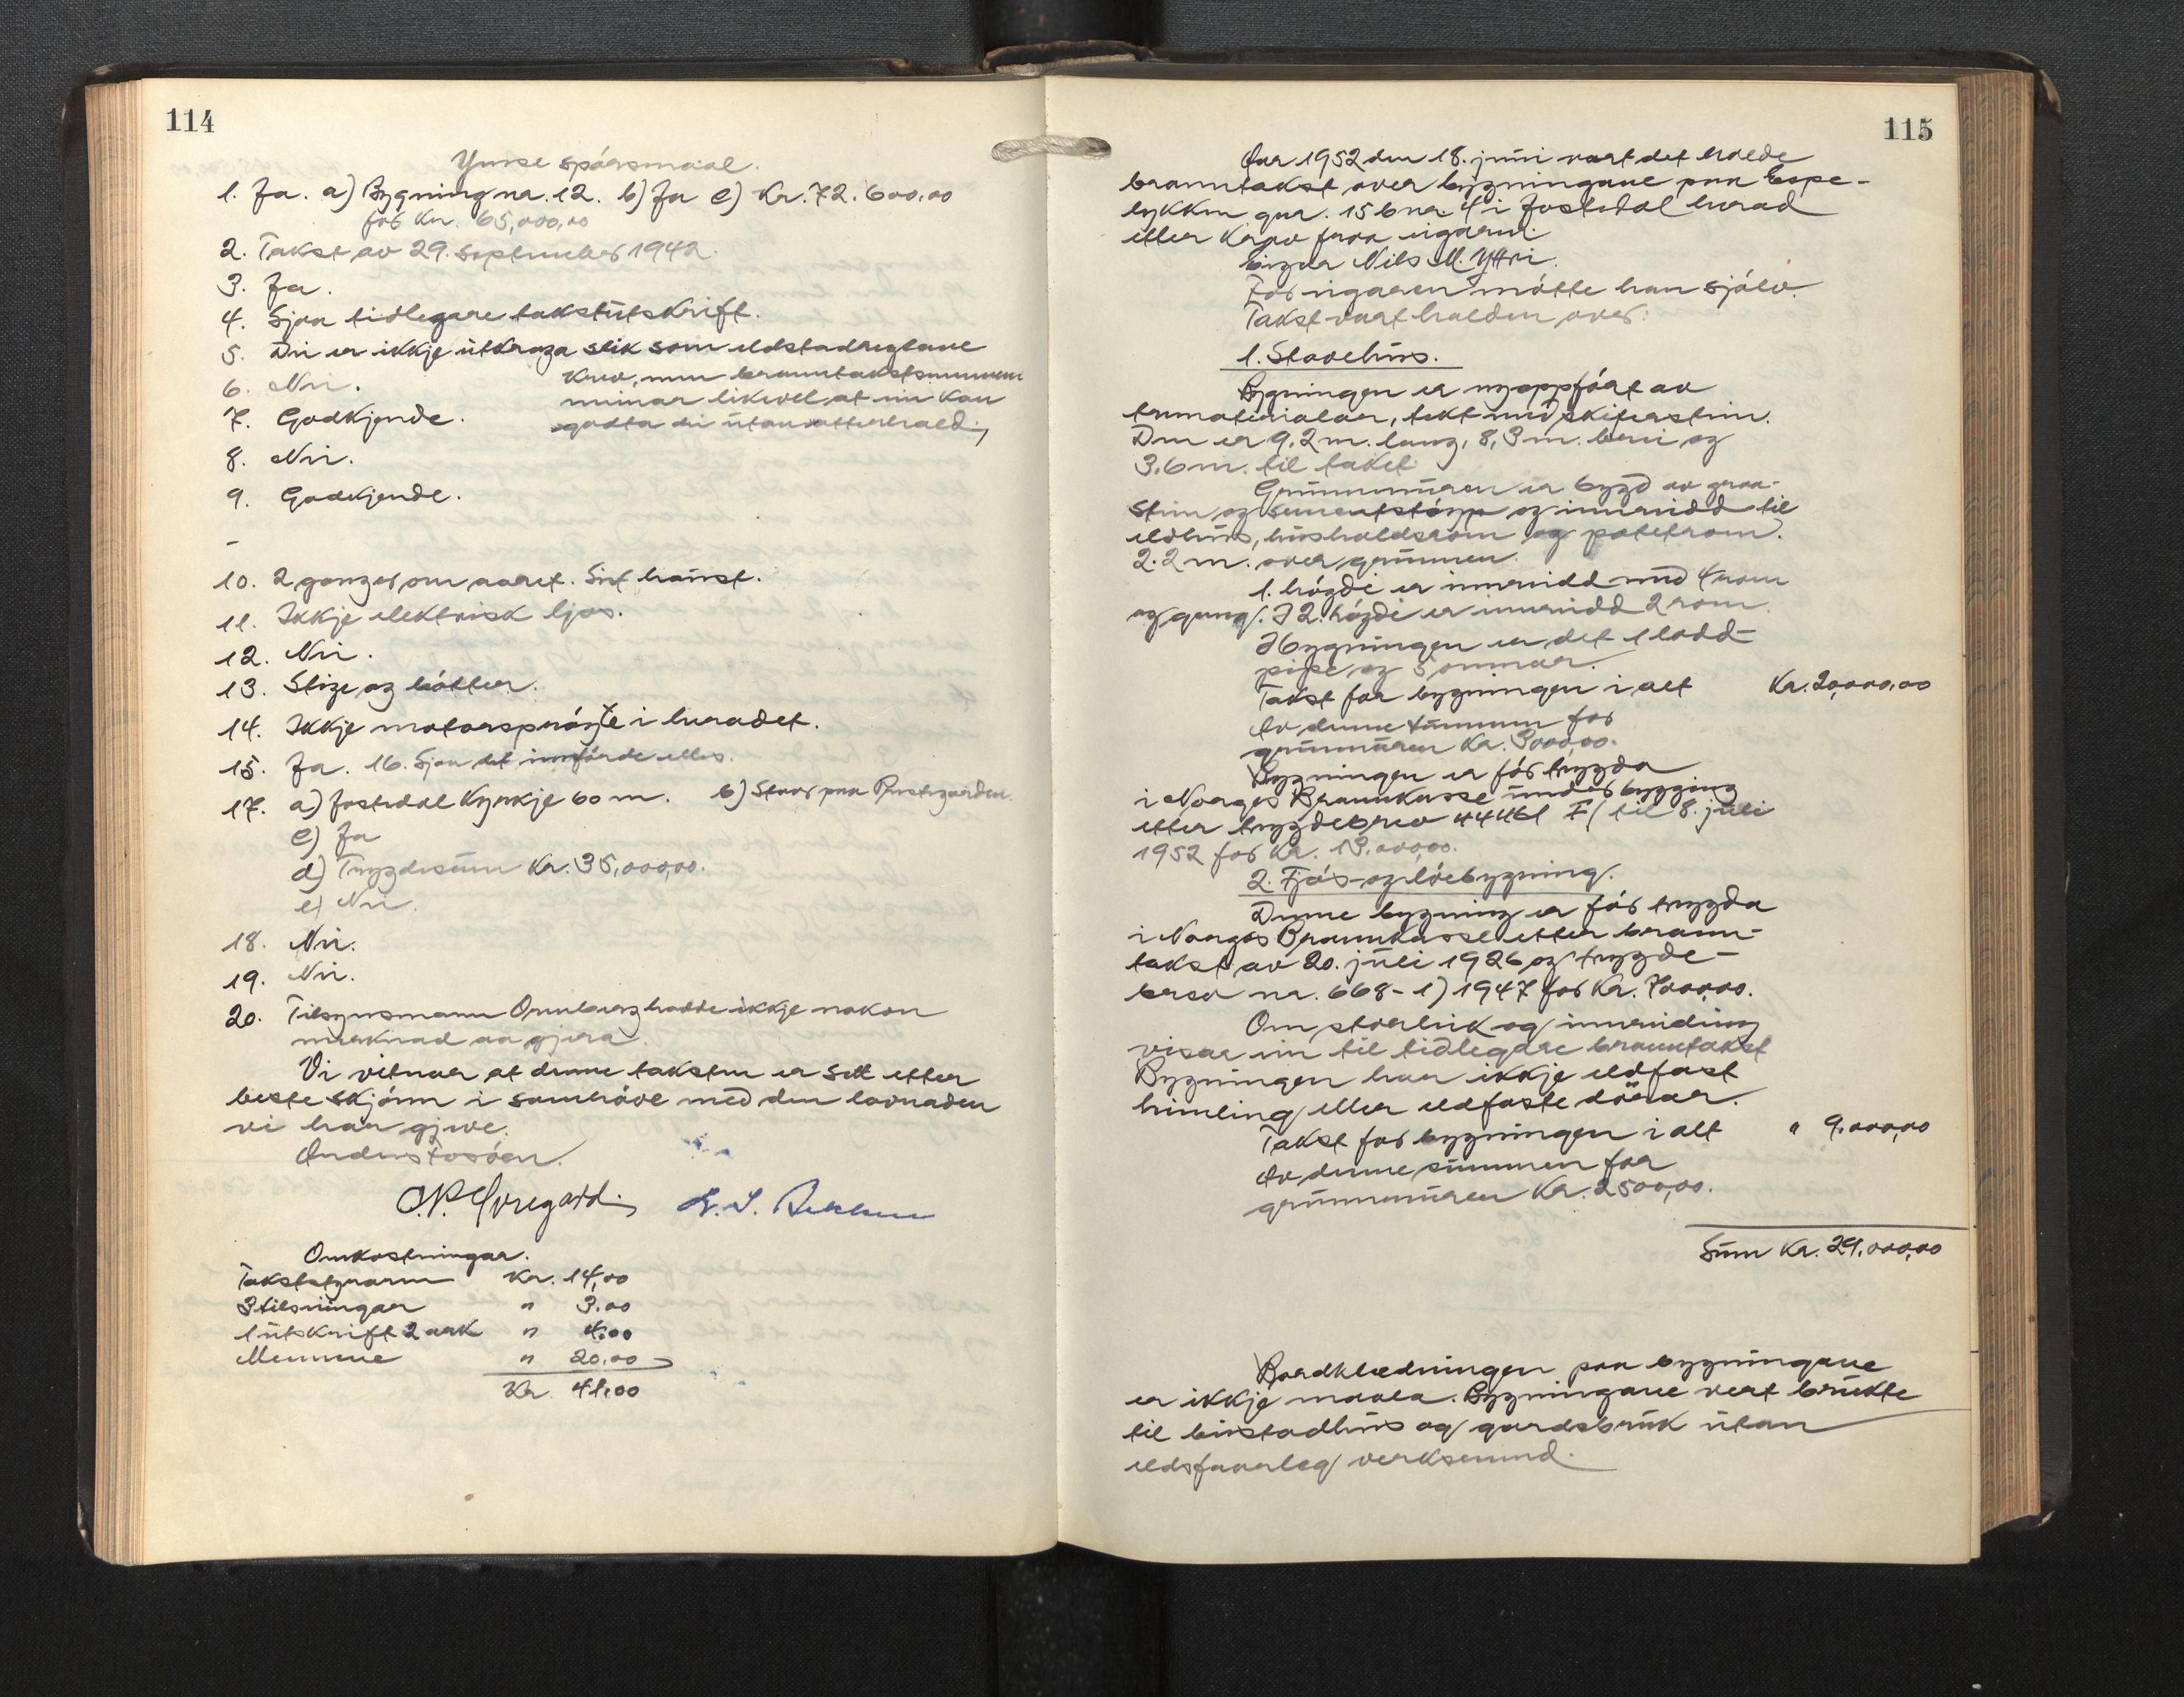 114
Ymse spørsmaal.
1. Ja. a) Bygning nr. 12. b) Ja c) Kr. 72.600,00
for Kr. 65,000,00
2. Takst av 29. september 1942.
3. Ja.
4. Sjaa tidlegare takstutskrift.
5. Dei er ikkje utkraga slik som eldstadreglane
krev, men branntakstmennene
meinar likevel at ein kan
godta dei utan atterhald.
6. Nei.
7. Godkjende.
8. Nei.
9. Godkjende.
-
10. 2 gonger om aaret. Sist haust.
11. Ikkje elektrisk ljos.
12. Nei.
13. Stige og bøtter.
14. Ikkje motorsprøyte i heradet.
15. Ja. 16. Sjaa det innførde elles.
17. a) Jostedal Kyrkje 60 m. b) Staar paa Prestegarden.
c) Ja
d) Trygdesum Kr. 35,000,00.
e) Nei.
18. Nei.
19. Nei.
20. Tilsynsmann Ormberg hadde ikkje nokon
merknad aa gjera.
Vi vitnar at denne taksten er sett etter
beste skjønn i samhøve med den lovnaden
vi har gjeve.
Anders Fossøen.
Øvregard.
Omkostningar.
Takststyraren Kr. 14,00
3 tilseiingar " 3.00
1 utskrift 2 ark " 4.00
Mennene " 20.00
Kr. 41.00
115
Aar 1952 den 18. juni vart det halde
branntakst over bygningane paa Espe-
lykkja gnr. 15 bnr. 4 i Jostedal herad
etter krav fraa eigaren.
Eigar Nils M. Yttri.
For eigaren møtte han sjølv.
Takst vart halden over:
1. Stovehus.
Bygningen er nyoppført av
trematerialar, tekt med skiferstein.
Den er 9,2 m. lang, 8,3 m. brei og
3,6 m. til taket.
Grunnmuren er bygd av graa-
stein og sementstøyp og innreidd til
eldhus, hushaldsrom og potetrom.
2.2 m. over grunnen.
1. høgde er innreidd med 4 rom
og gang. I 2. høgde er innreidd 2 rom.
I bygningen er det 1 lodd-
pipe og 3 omnar.
Takst for bygningen i alt Kr. 20,000,00
Av denne summen for
grunnmuren Kr. 3000,00.
Bygningen er før trygda
i Norges Brannkasse under bygging
etter trygdebrev 44461 F/ til 8. juli
1952 for Kr. 13.000,00.
2. Fjøs- og løebygning.
Denne bygning er før trygda
i Norges Brannkasse etter brann-
takst av 20. juli 1926 og trygde-
brev nr. 668-1) 1947 for Kr. 7000,00.
Om storleik og innreiding
visar ein til tidlegare branntakst
Bygningen har ikkje eldfast
himling eller eldfaste dører.
Takst for bygningen i alt " 9.000,00
Av denne summen for
grunnmuren Kr. 2500,00.
Sum Kr. 29.000,00
Bordklædningen paa bygningane
er ikkje maala. Bygningane vert brukte
til bustadhus og gardsbruk utan
eldsfaarleg verksemd.